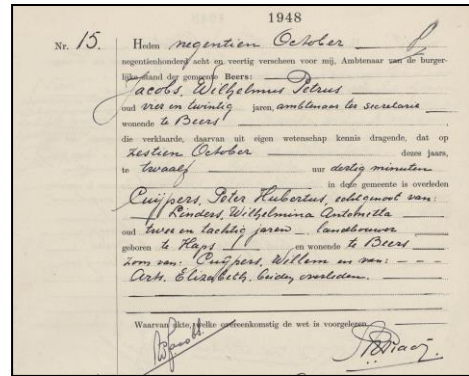 1948
Nr. 15. Heden negentien October
negentienhonderd acht en veertig verscheen voor mij, Ambtenaar van de burger-
lijke stand der gemeente Beers:
Jacobs, Wilhelmus Petrus
oud vier en twintig jaren, ambtenaar ter secretarie
wonende te Beers
die verklaarde, daarvan uit eigen wetenschap kennis dragende, dat op
zestien October dezes jaars,
te twaalf uur dertig minuten
in deze gemeente is overleden
Cuijpers, Peter Hubertus, echtgenoot van:
Linders, Wilhelmina Antonetta
oud twee en tachtig jaren landbouwer
geboren te Haps en wonende te Beers
zoon van: Cuijpers, Willem en van: - - -
Arts, Elizabeth, beiden overleden.
Waarvan akte, welke overeenkomstig de wet is voorgelezen.
Jacobs.